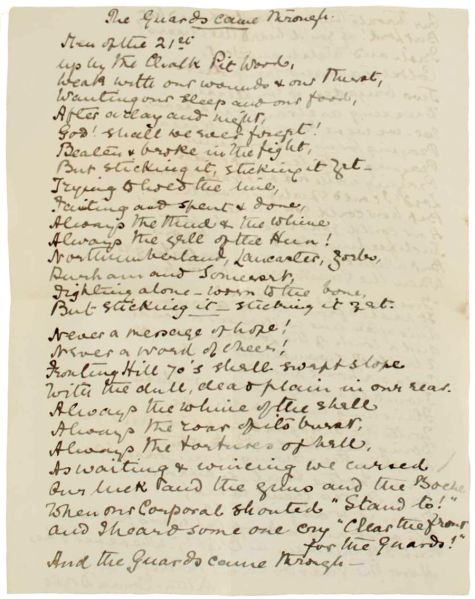 The Guards came through.
Men of the 21st
up by the Chalk Pit Wood,
Weak with our wounds & our thirst,
Wanting our sleep and our food,
After a day and night,
God! shall we ever forget!
Beaten & broke in the fight,
But sticking it, sticking it yet—
Trying to hold the line,
Fainting and spent & done,
Always the thud & the whine
Always the yell of the Hun!
Northumberland, Lancaster, York,
Durham and Somerset,
Fighting alone – worn to the bone,
But sticking it – sticking it yet.
Never a message of hope!
Never a word of cheer!
Fronting Hill 70's shell swept slope
With the dull, dead plain in our rear.
Always the whine of the shell
Always the roar of its burst,
Always the tortures of hell,
As waiting & wincing we cursed
Our luck and the guns and the Boche
When our Corporal shouted "Stand to!"
And I heard some one cry "Clear the front
for the Guards!"
And the Guards came through—